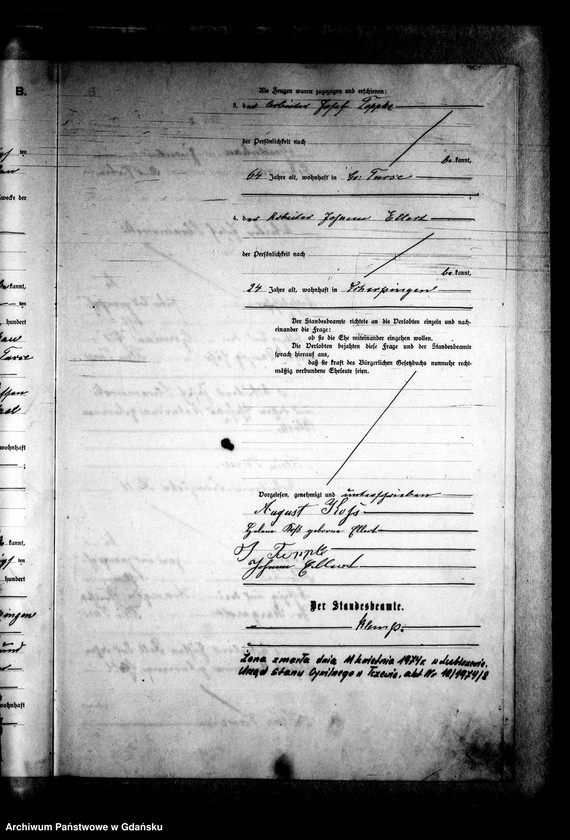 B.
Als Zeugen waren zugezogen und erschienen:
3. der Arbeiter Josef Teppke
der Persönlichkeit nach
be kannt,
64 Jahre alt, wohnhaft in Gr. Turse
4. der Arbeiter Johann Ellert
der Persönlichkeit nach
be kannt,
24 Jahre alt, wohnhaft in Scherpingen
Der Standesbeamte richtete an die Verlobten einzeln und nach-
einander die Frage:
ob sie die Ehe miteinander eingehen wollen.
Die Verlobten bejahten diese Frage und der Standesbeamte
sprach hierauf aus,
daß sie kraft des Bürgerlichen Gesetzbuchs nunmehr recht-
mäßig verbundene Eheleute seien.
Vorgelesen, genehmigt und unterschrieben
August Koß
Helene Koß geborene Ellert
J Teppke
Johann Ellert
Der Standesbeamte.
Żona zmarła dnia 11 kwietnia 1974 r. w Lubiszewie.
Urząd Stanu Cywilnego w Tczewie, akt Nr 10/1974/8
Zwecke der
kannt,
hundert
Turse
wohnhaft
kannt,
hundert
wohnhaft
Archiwum Państwowe w Gdańsku